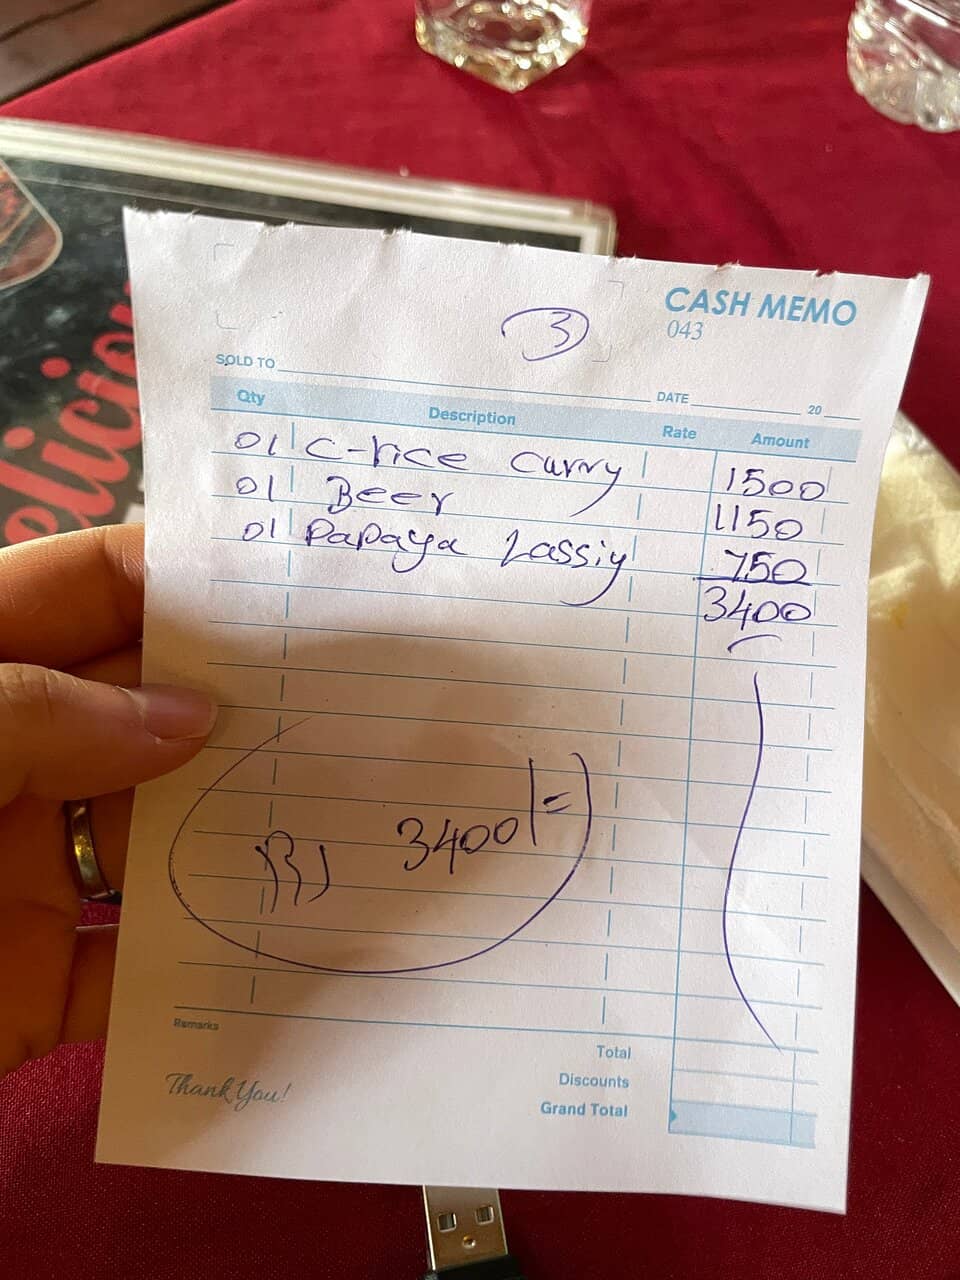 elicio
3
CASH MEMO
043
SOLD TO
DATE 20
Qty Description Rate Amount
01 C-rice Curry 1500
01 Beer 1150
01 Papaya Lassiy 750
3400
3400/=
Remarks
Total
Thank You!
Discounts
Grand Total